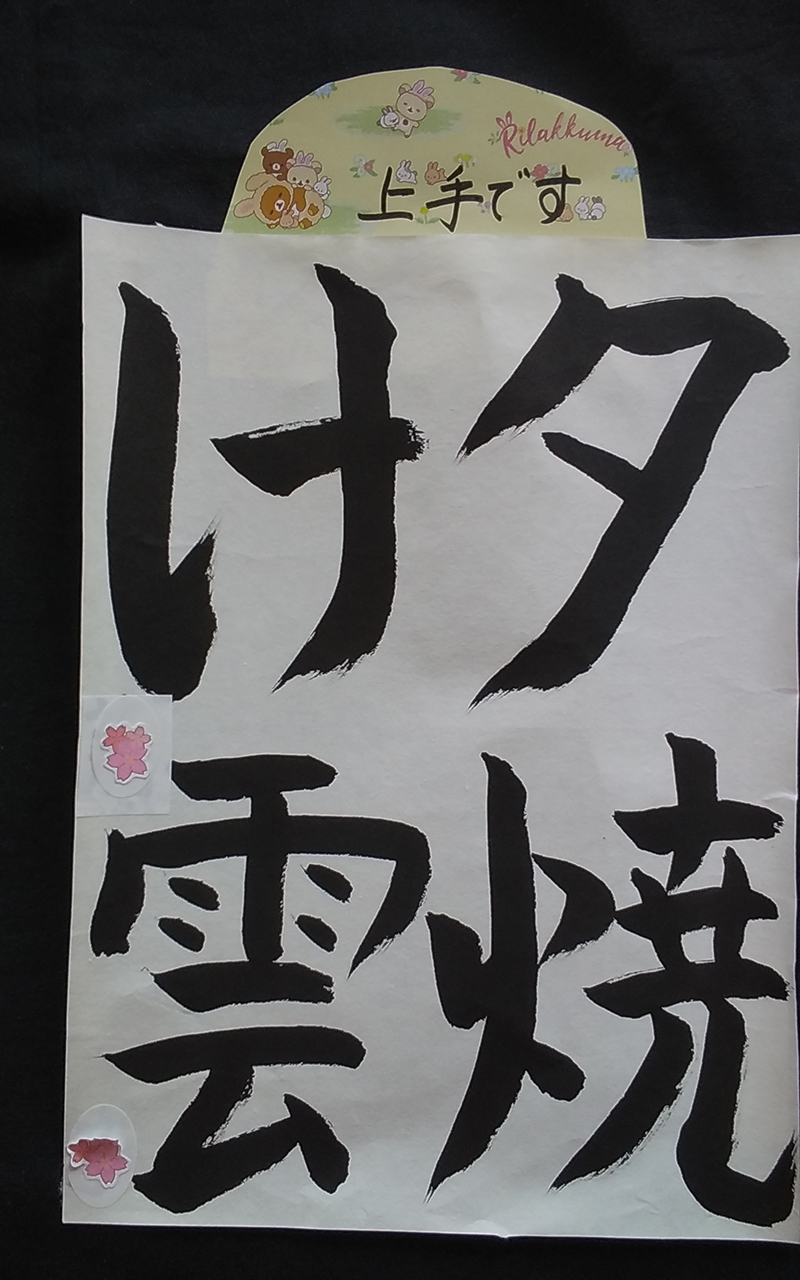 Rilakkuma
上手です
夕焼
け雲